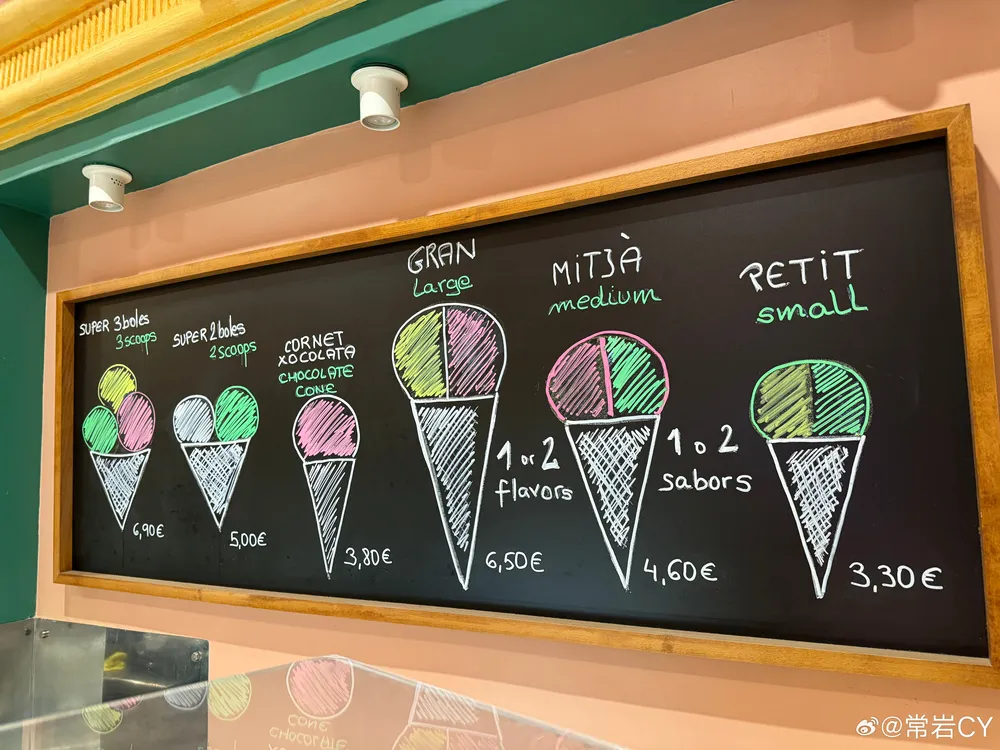 SUPER 3 boles
3 scoops
6,90€
SUPER 2 boles
2 scoops
5,00€
CORNET
XOCOLATA
CHOCOLATE
CONE
3,80€
GRAN
Large
1 or 2
flavors
6,50€
MiTJÀ
medium
1 o 2
sabors
4,60€
PETiT
small
3,30€
CONE
CHOCOLATE
@常岩CY